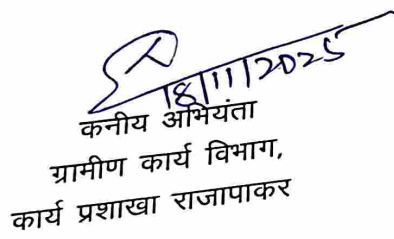 18/11/2025
कनीय अभियंता
ग्रामीण कार्य विभाग,
कार्य प्रशाखा राजापाकर